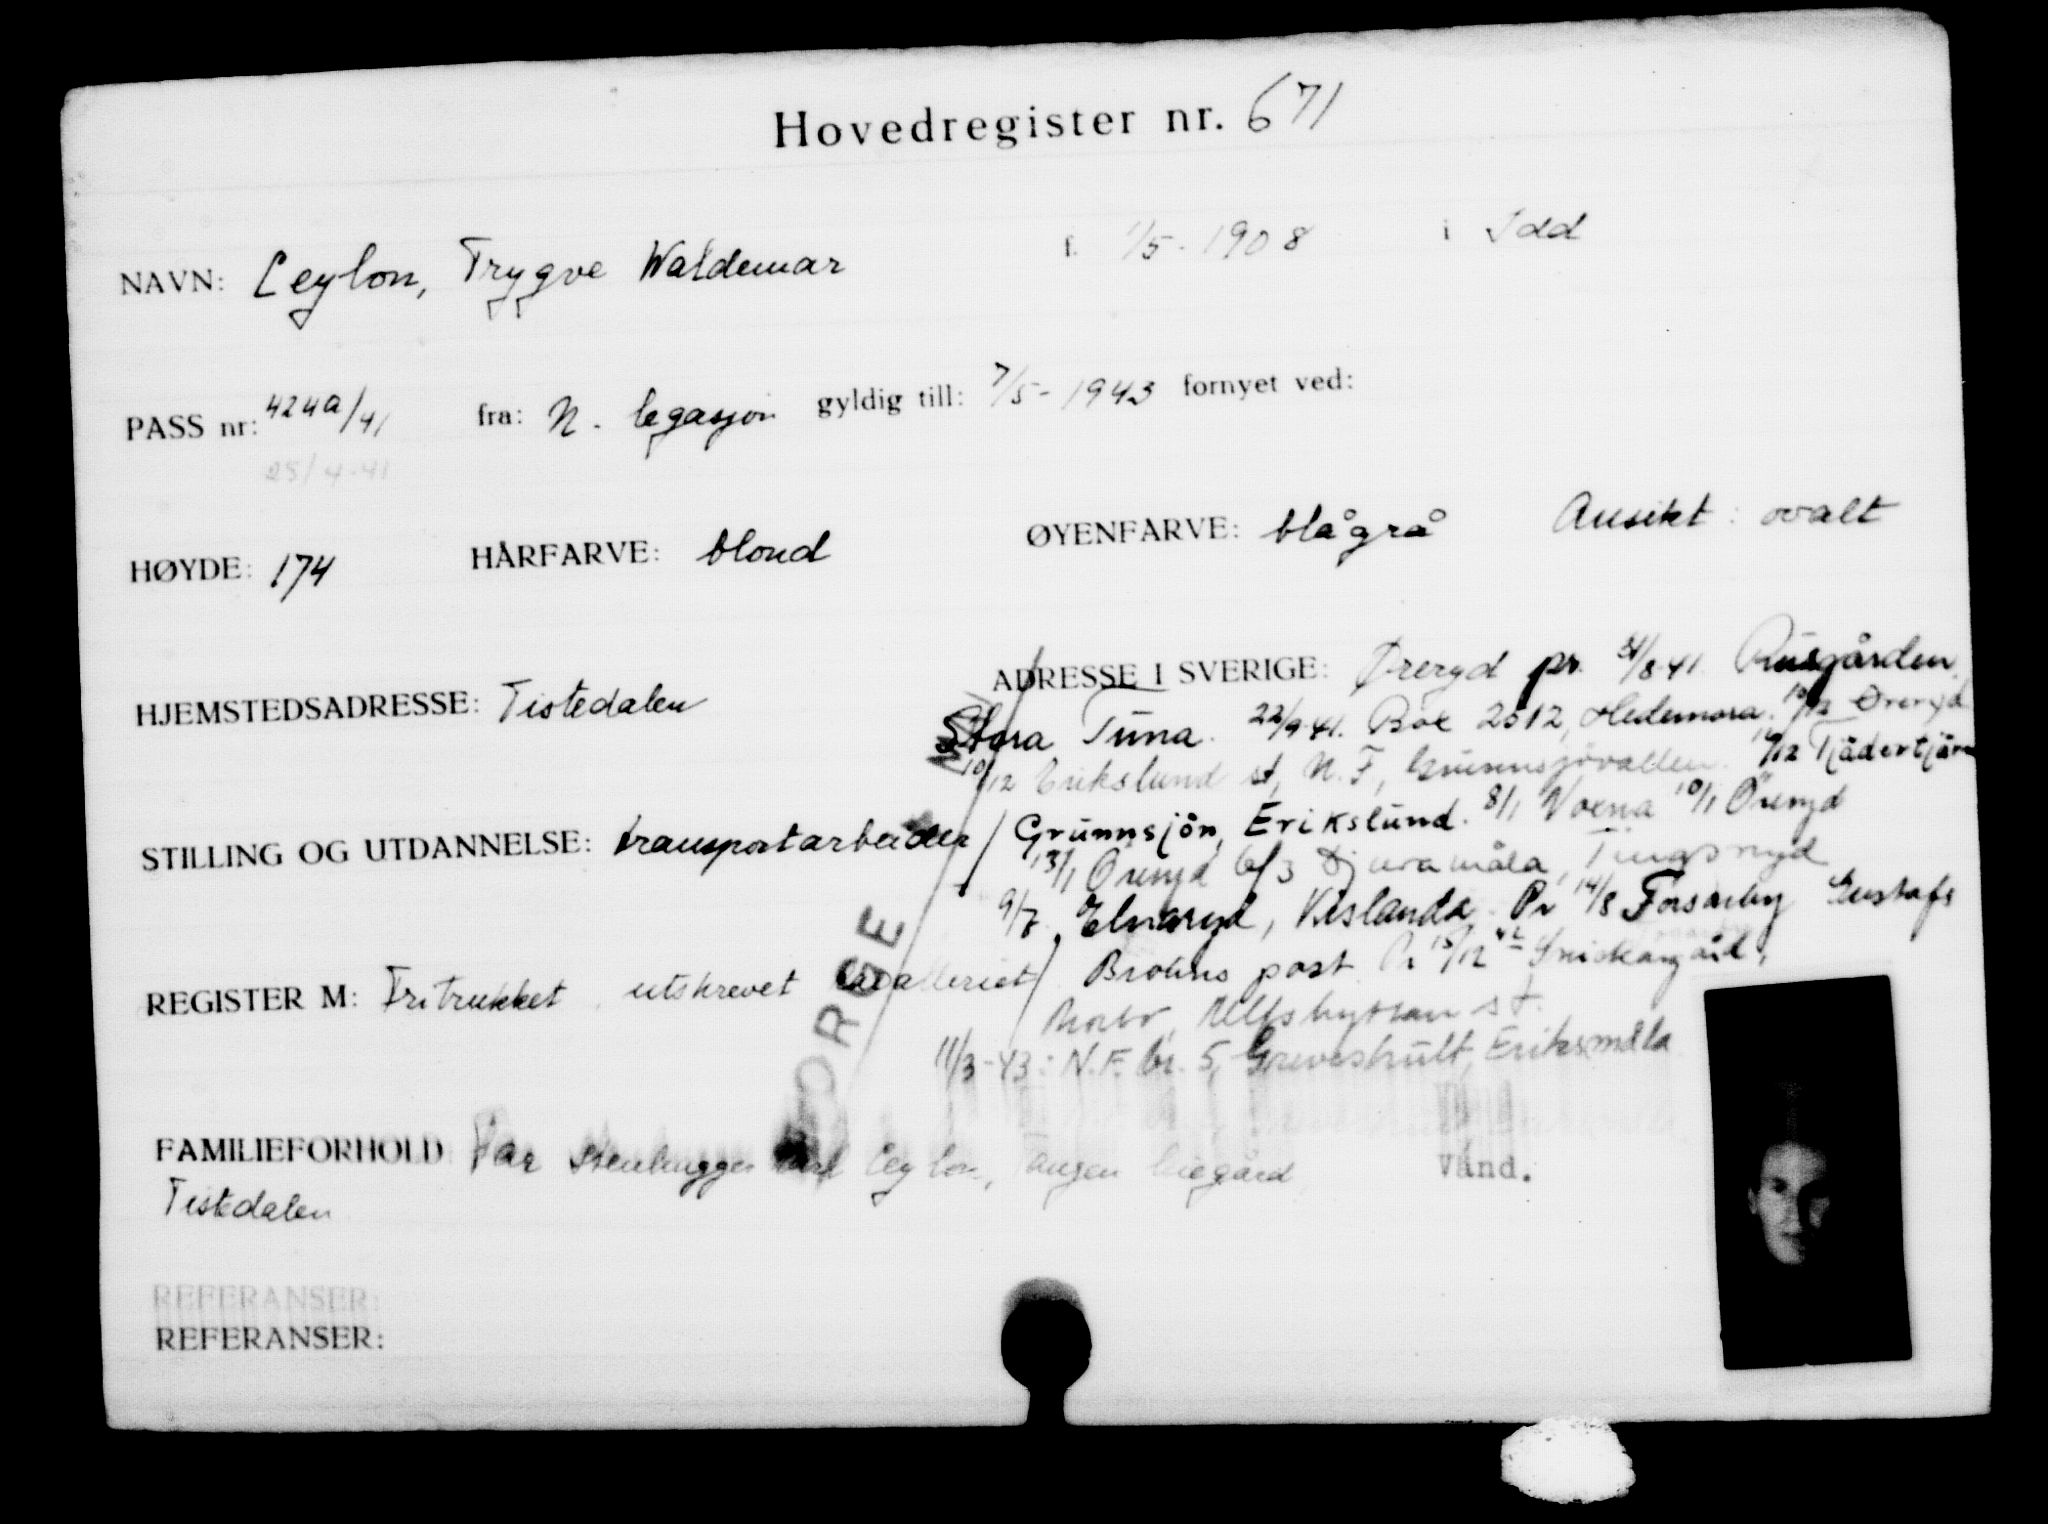 Hovedregister nr. 671
NAVN: Ceylon, Trygve Waldemar f. 1/5 - 1908 i Idd
PASS nr: 424a/41 fra: N. legasjon gyldig till: 7/5 - 1943 fornyet ved:
25/4-41
HØYDE: 174 HÅRFARVE: blond ØYENFARVE: blågrå Ansikt: ovalt
HJEMSTEDSADRESSE: Tistedalen ADRESSE I SVERIGE: Øreryd pr. 21/8-41
Stora Tuna. 22/9-41. Box 2512, Hedemora. 10/12 Øreryd
10/12 Erikslund st, N.F, 12 Tjädertjärn
STILLING OG UTDANNELSE: transportarbeider / Grunnsjön, Erikslund. 8/1 Voxna 10/1 Öreryd
13/1 Öreryd 6/3 Djuramåla, Tingsryd
9/7 Elnaryd, Vislanda. Pr 14/8 Forsarby Gustafs
REGISTER M: Fritrukket utskrevet kavalleriet / post Pr 15/12 42 Snickargård,
Norbo, Ulfshyttan st.
11/3-43: N.F. br. 5, Greveshult, Eriksmåla
NORGE
FAMILIEFORHOLD Far Stenhugger Karl Ceylon, Vend.
Tistedalen
REFERANSER:
REFERANSER: